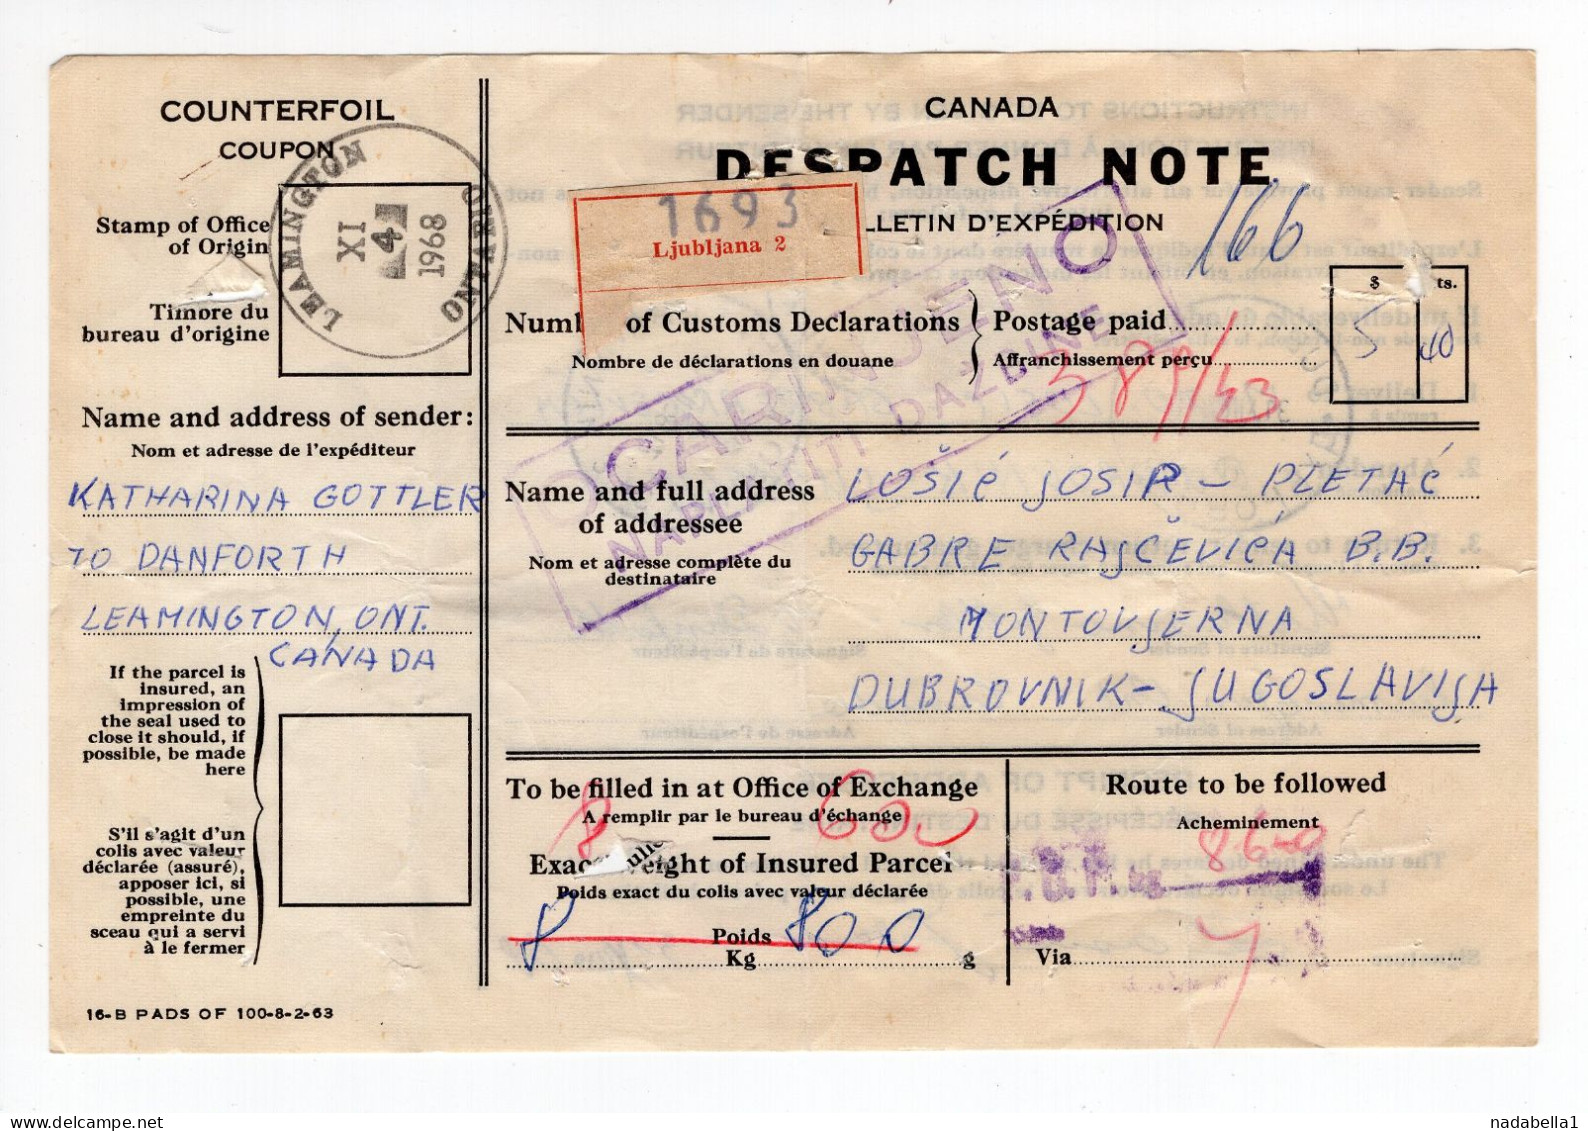 COUNTERFOIL
COUPON
Stamp of Office
of Origin
Timbre du
bureau d'origine
LEAMINGTON
ONTARIO
XI
4
1968
Name and address of sender:
Nom et adresse de l'expéditeur
KATHARINA GOTTLER
70 DANFORTH
LEAMINGTON, ONT.
CANADA
If the parcel is
insured, an
impression of
the seal used to
close it should, if
possible, be made
here
S'il s'agit d'un
colis avec valeur
déclarée (assuré),
apposer ici, si
possible, une
empreinte du
sceau qui a servi
à le fermer
16-B PADS OF 100-8-2-63
CANADA
DESPATCH NOTE
LLETIN D'EXPÉDITION
1693
Ljubljana 2
166
OCARINJENO
NAPLATITI DAZBINE
Numb of Customs Declarations
Nombre de déclarations en douane
Postage paid
Affranchissement perçu
$ ts.
5 40
Name and full address
of addressee
Nom et adresse complète du
destinataire
LOŠIĆ JOSIP – PLETAĆ
GABRE RAJČEVIĆA B.B.
MONTOVJERNA
DUBROVNIK – JUGOSLAVIJA
To be filled in at Office of Exchange
A remplir par le bureau d'échange
8 600
Exac eight of Insured Parcel
Poids exact du colis avec valeur déclarée
8 800
Poids
Kg g
Route to be followed
Acheminement
Via
nadabella1